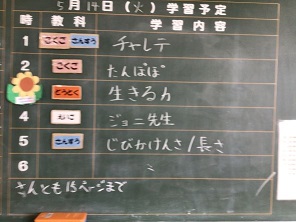 5月14日(火)学習予定
時 教科 学習内容
1 こくご さんすう チャレテ
2 こくご たんぽぽ
3 どうとく 生きる力
4 えいご ジョニ先生
5 さんすう じびかけんさ/長さ
6
さんとも15ページまで